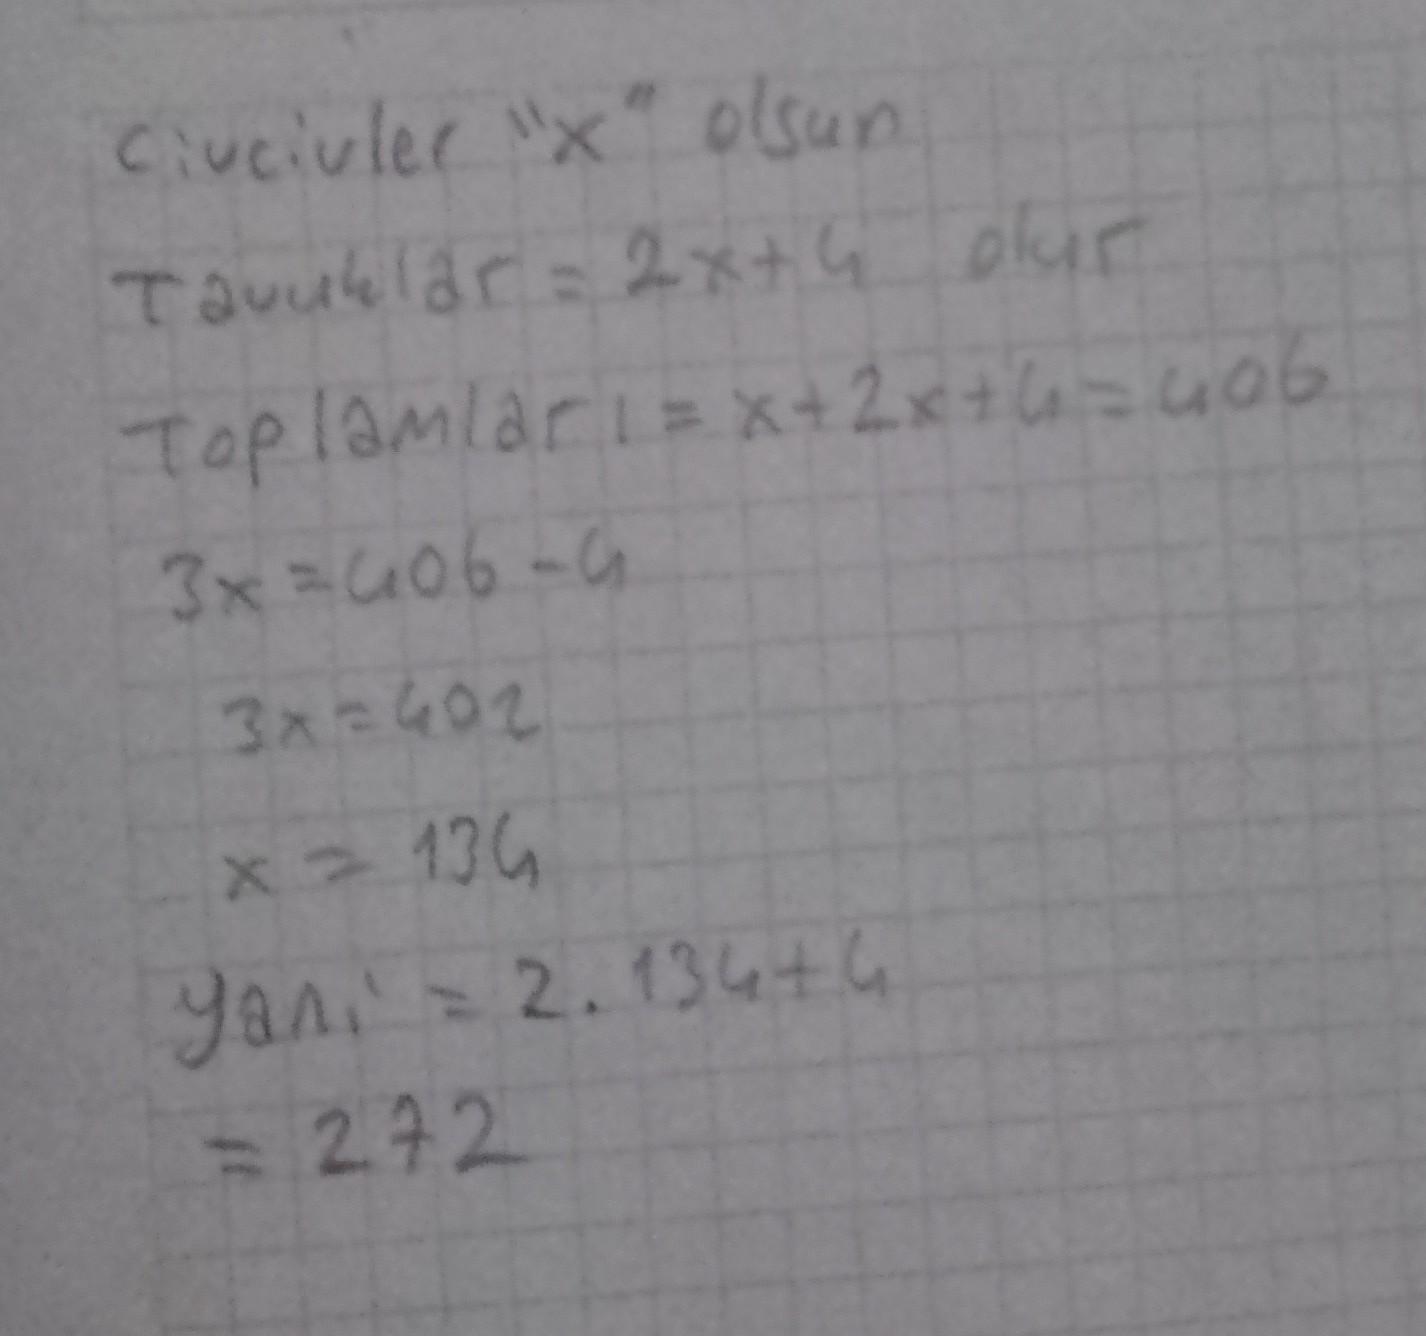 Civcivler "x" olsun
Tavuklar = 2x+4 olur
Toplamları = x+2x+4=406
3x=406-4
3x=402
x = 134
yani = 2.134+4
= 272